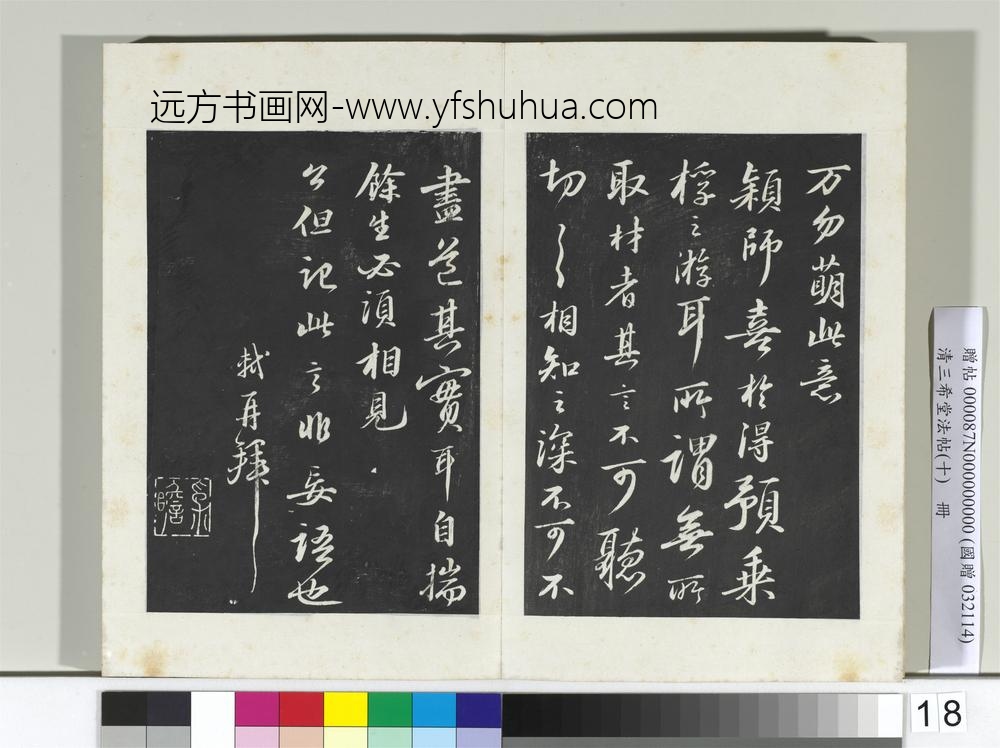 远方书画网-www.yfshuhua.com
万勿萌此意
穎師喜於得預乗
桴之游耳所謂無所
取材者其言不可聽
切〻相知之深不可不
盡道其實耳自揣
餘生必須相見
公但記此言非妄語也
軾再拜
贈帖 000087N000000000 (國贈 032114)
清三希堂法帖(十) 冊
18